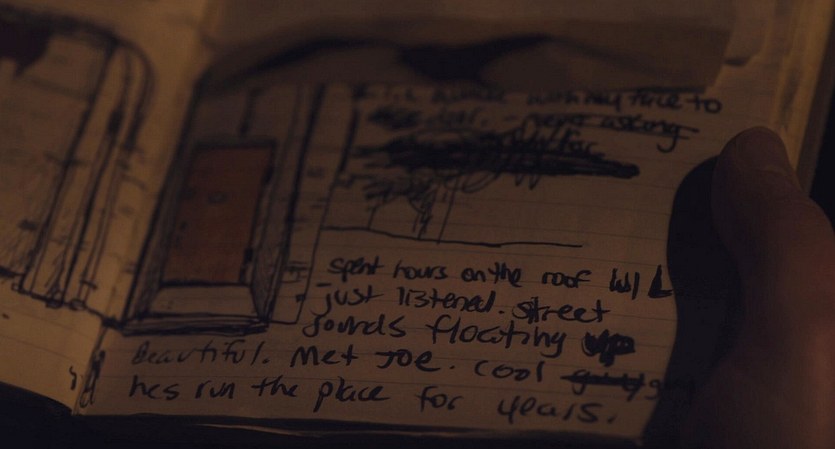 with my face to
never asking
spent hours on the roof w/ L
just listened. street
sounds floating up
Beautiful. Met JOE. cool guy
hes run the place for years.